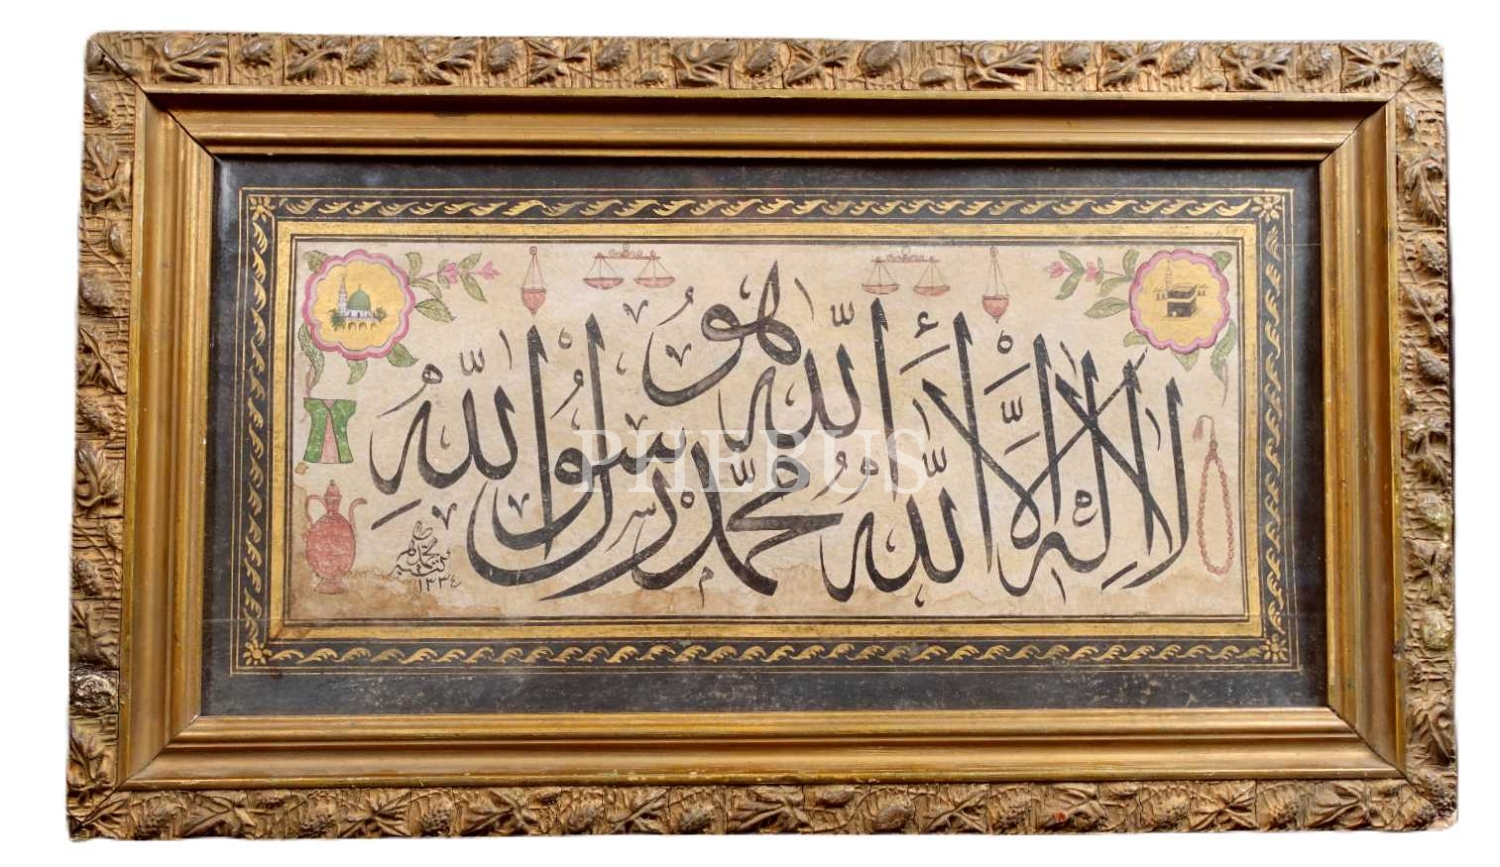 أَلله هُو
لا اله الّا الله مُحمّد رسُولُ اللهِ
١٣٣٤
PHEBUS